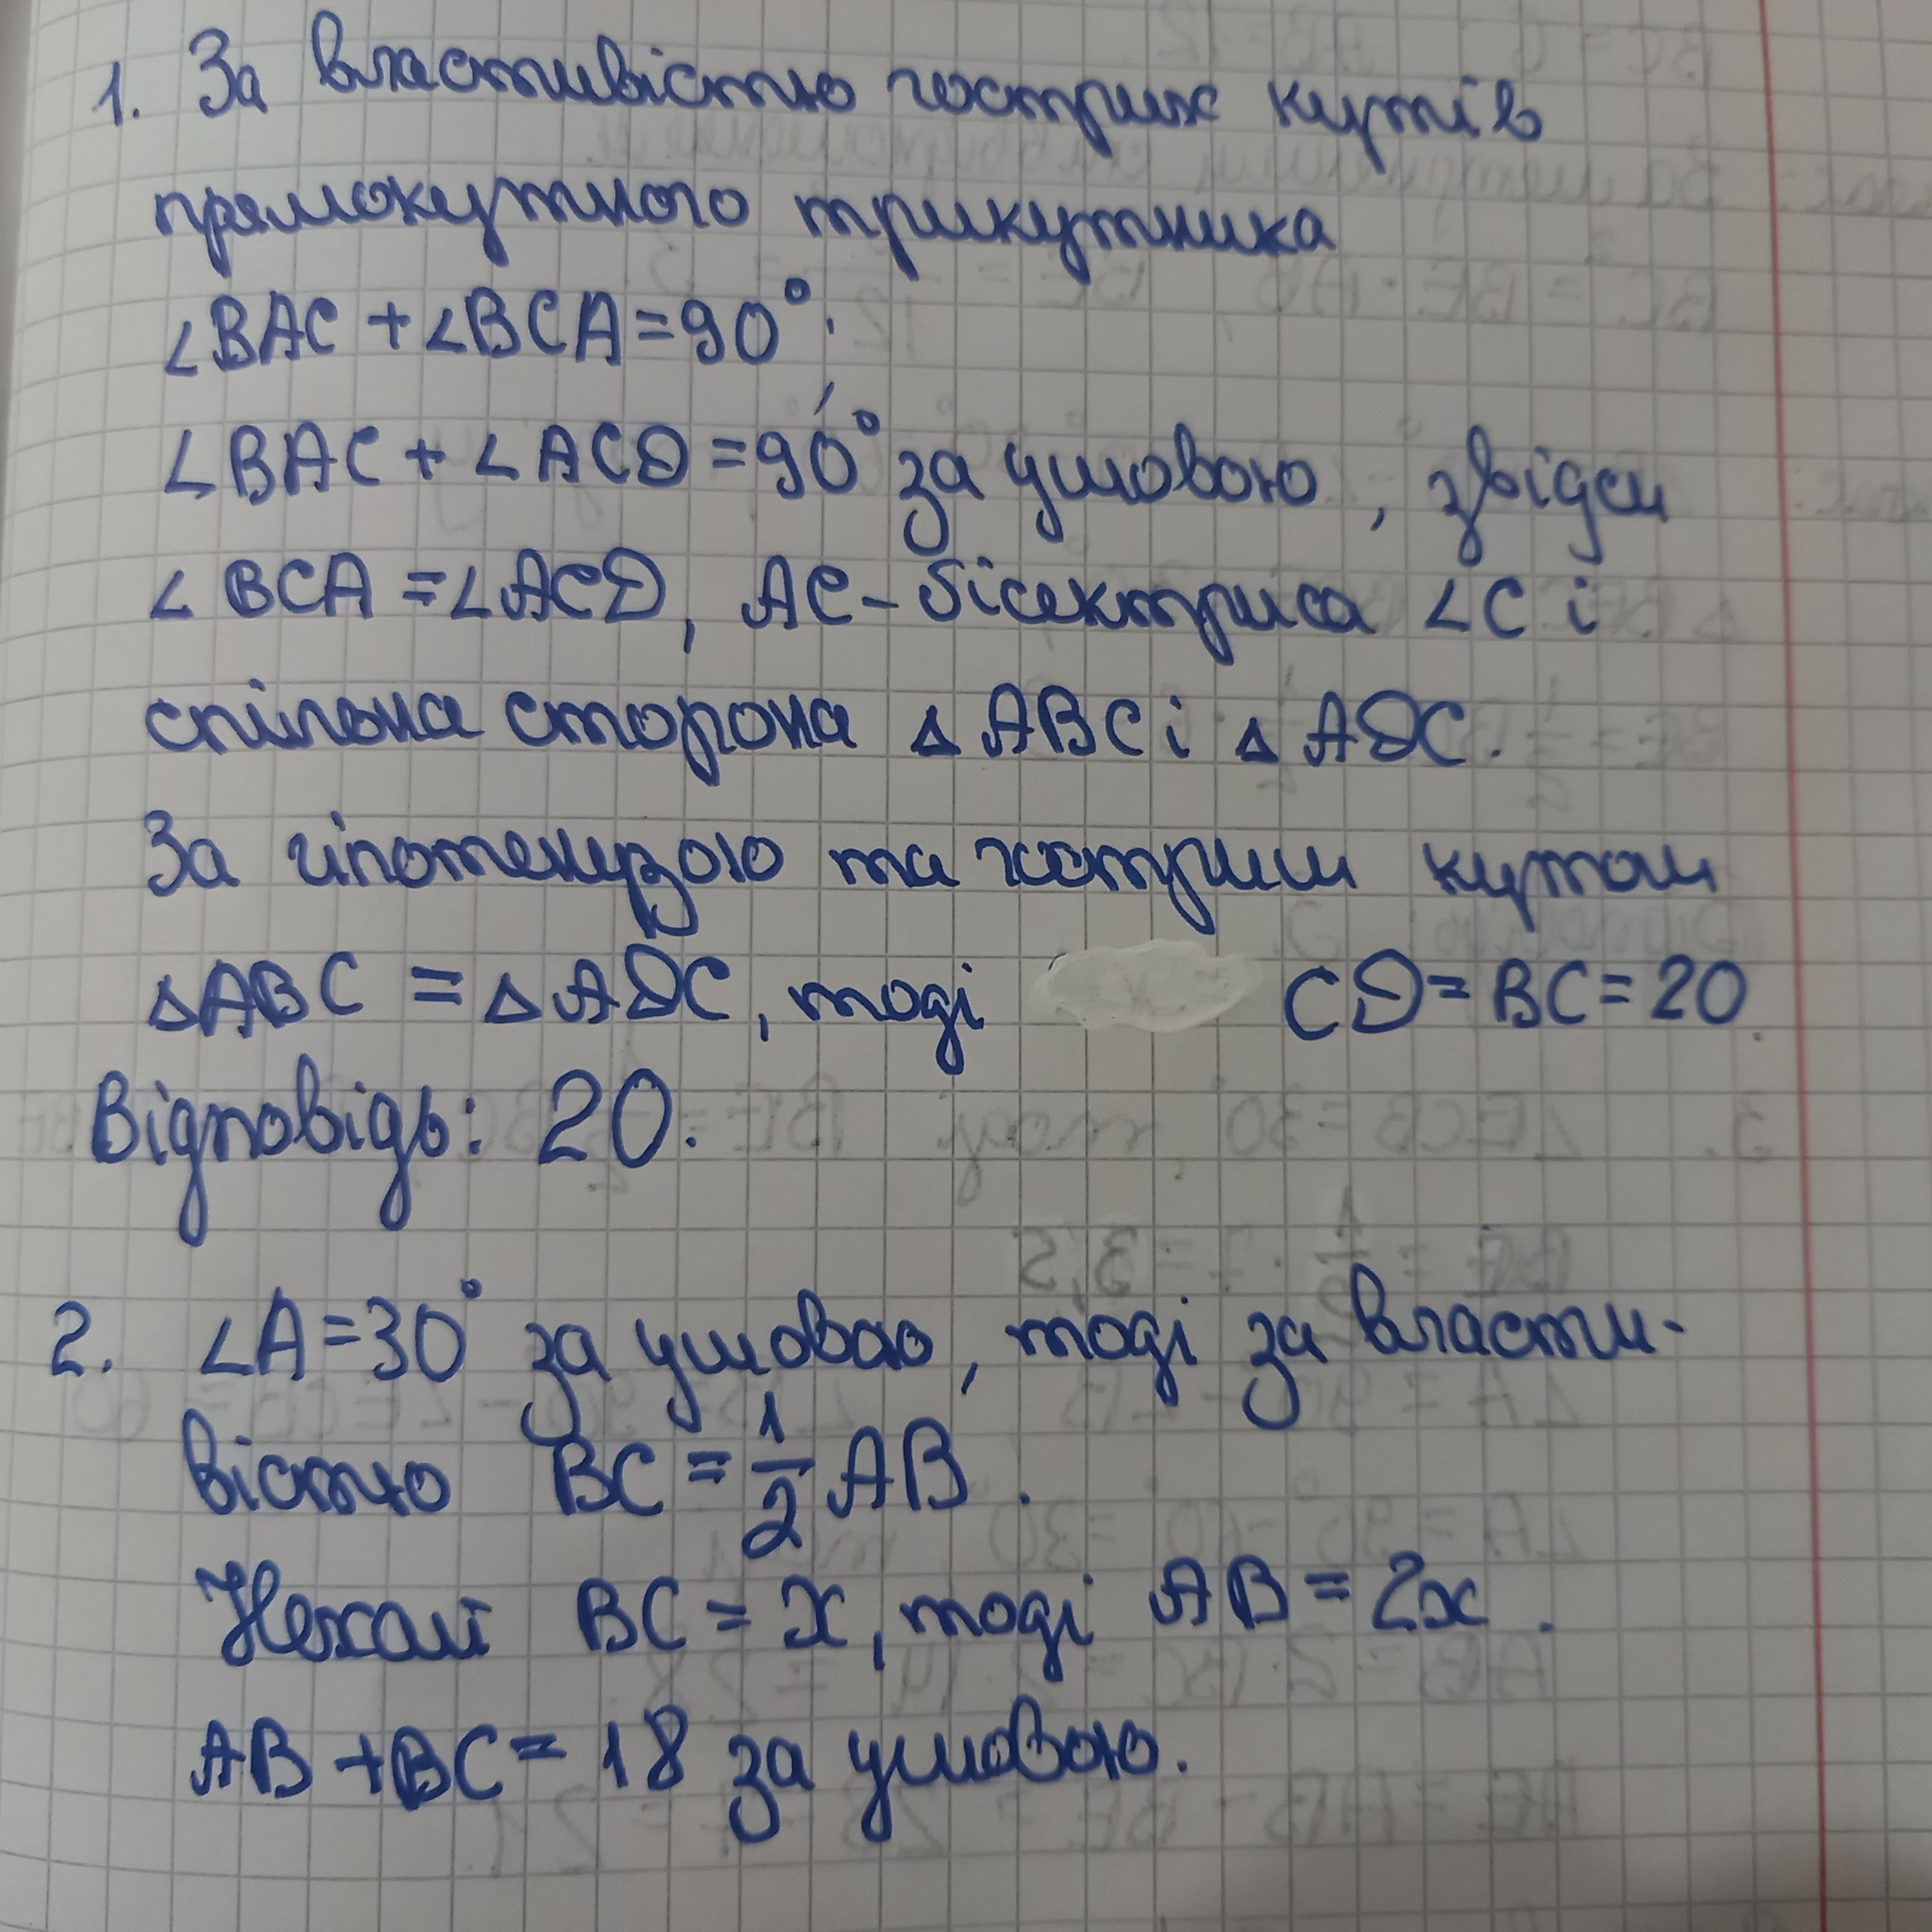 1. За властивістю гострих кутів
прямокутного трикутника
∠BAC + ∠BCA = 90°.
∠BAC + ∠ACD = 90° за умовою, звідси
∠BCA = ∠ACD, AC - бісектриса ∠C і
спільна сторона △ABC і △ADC.
За гіпотенузою та гострим кутом
△ABC = △ADC, тоді CD = BC = 20.
Відповідь: 20.
2. ∠A = 30° за умовою, тоді за власти-
вістю BC = 1/2 AB.
Нехай BC = x, тоді AB = 2x.
AB + BC = 18 за умовою.